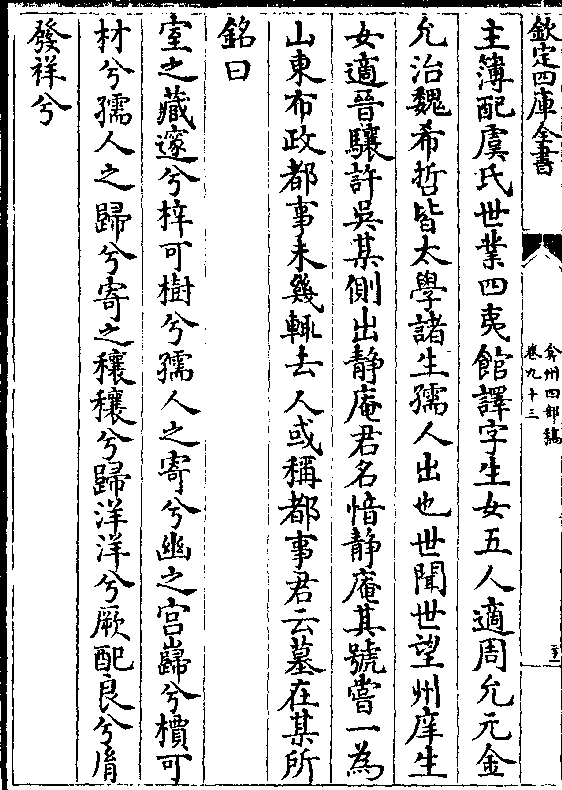 欽定四庫全書
弇州四部稿
卷九十三
主簿配虞氏世業四夷館譯字生女五人適周允元金
允治魏希哲皆太學諸生孺人出也世聞世望州庠生
女適晉驤許吳某側出静庵君名愔静庵其號嘗一為
山東布政都事未幾輒去人或稱都事君云墓在某所
銘曰
室之藏邃兮梓可樹兮孺人之寄兮幽之宫巋兮檟可
材兮孺人之歸兮寄之穰穰兮歸洋洋兮厥配良兮胤
發祥兮